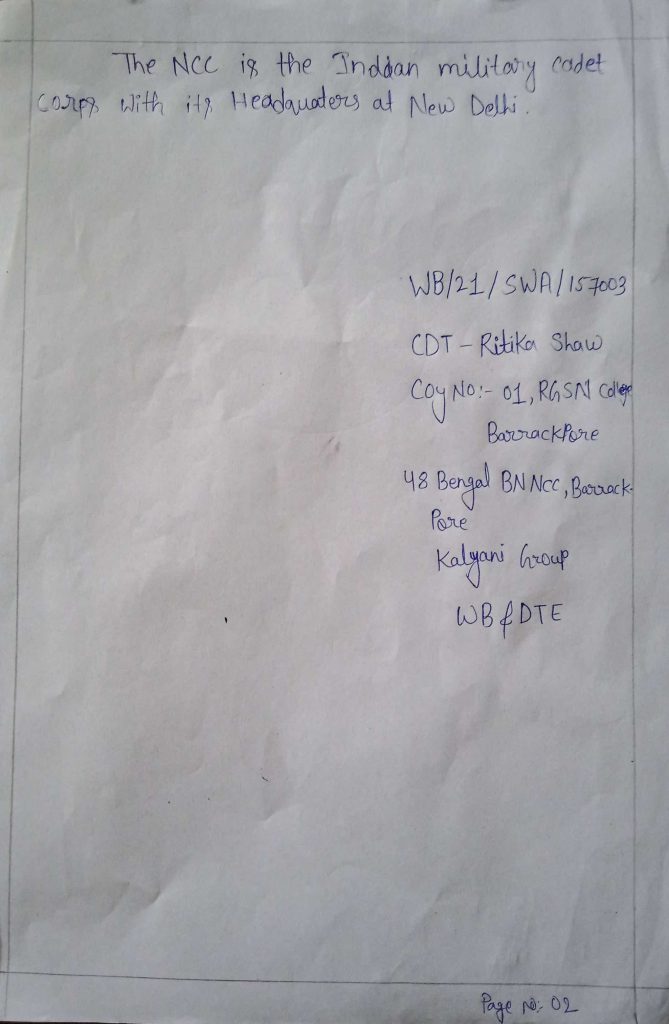 The NCC is the Inddan military cadet
corps with its Headquaters at New Delhi.
WB/21/SWA/157003
CDT - Ritika Shaw
Coy No:- 01, RGSM College
BarrackPore
48 Bengal BN NCC, Barrack-
Pore
Kalyani Group
WB & DTE
Page no:- 02